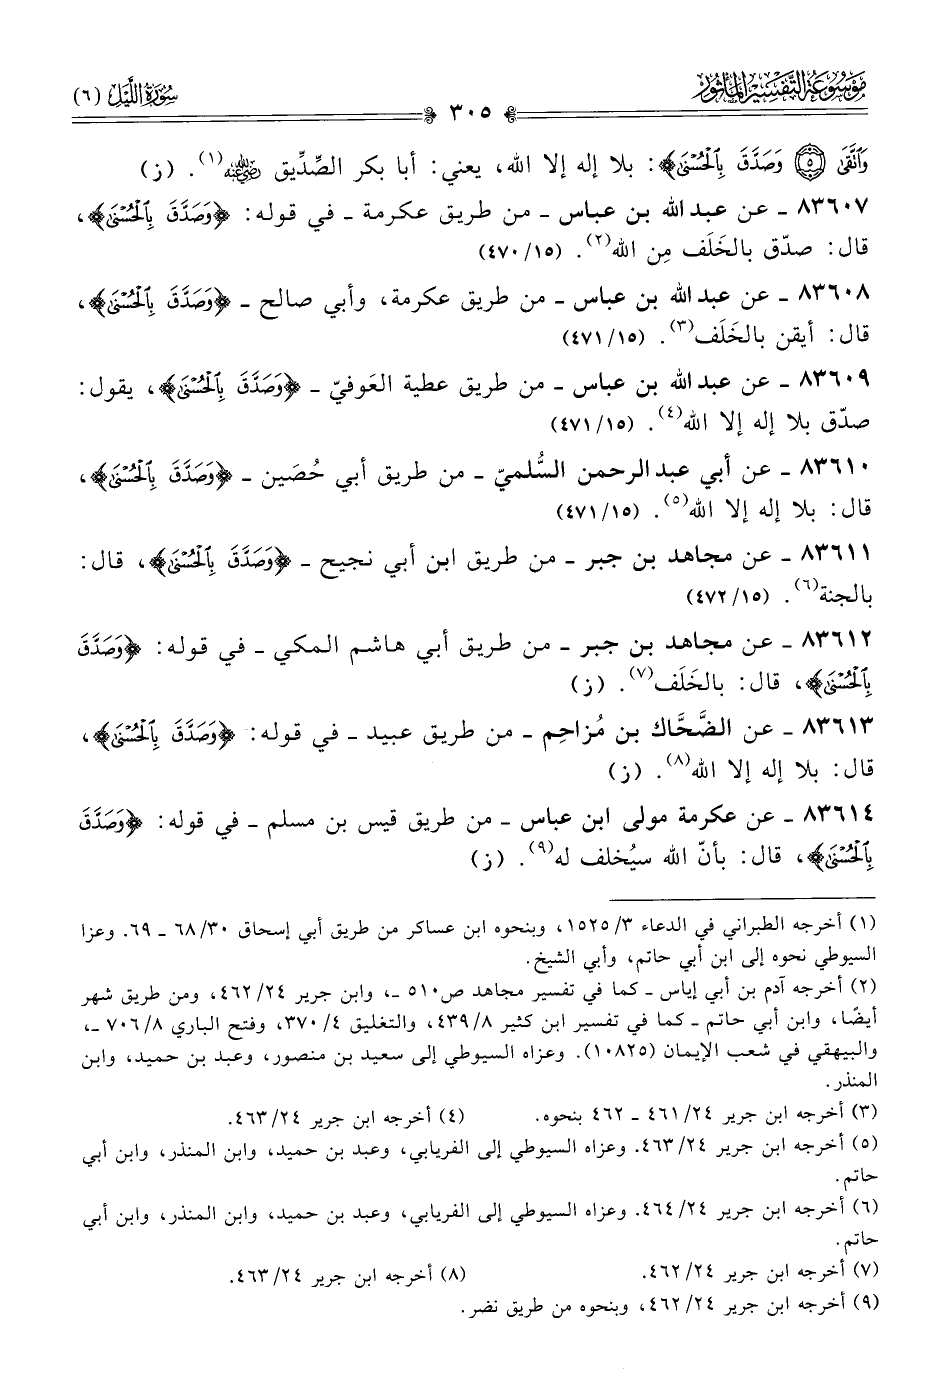 موسوعة التفسير المأثور
سورة الليل (٦)
٣٠٥
وَٱتَّقَىٰ ٥ وَصَدَّقَ بِٱلْحُسْنَىٰ﴾: بلا إله إلا الله، يعني: أبا بكر الصِّدِّيق رضي الله عنه(١). (ز)
٨٣٦٠٧ ـ عن عبد الله بن عباس ـ من طريق عكرمة ـ في قوله: ﴿وَصَدَّقَ بِٱلْحُسْنَىٰ﴾،
قال: صدّق بالخَلَف مِن الله(٢). (٤٧٠/١٥)
٨٣٦٠٨ ـ عن عبد الله بن عباس ـ من طريق عكرمة، وأبي صالح ـ ﴿وَصَدَّقَ بِٱلْحُسْنَىٰ﴾،
قال: أيقن بالخَلَف(٣). (٤٧١/١٥)
٨٣٦٠٩ ـ عن عبد الله بن عباس ـ من طريق عطية العَوفيّ ـ ﴿وَصَدَّقَ بِٱلْحُسْنَىٰ﴾، يقول:
صدّق بلا إله إلا الله(٤). (٤٧١/١٥)
٨٣٦١٠ ـ عن أبي عبد الرحمن السُّلميّ ـ من طريق أبي حُصَين ـ ﴿وَصَدَّقَ بِٱلْحُسْنَىٰ﴾،
قال: بلا إله إلا الله(٥). (٤٧١/١٥)
٨٣٦١١ ـ عن مجاهد بن جبر ـ من طريق ابن أبي نجيح ـ ﴿وَصَدَّقَ بِٱلْحُسْنَىٰ﴾، قال:
بالجنة(٦). (٤٧٢/١٥)
٨٣٦١٢ ـ عن مجاهد بن جبر ـ من طريق أبي هاشم المكي ـ في قوله: ﴿وَصَدَّقَ
بِٱلْحُسْنَىٰ﴾، قال: بالخَلَف(٧). (ز)
٨٣٦١٣ ـ عن الضَّحَّاك بن مُزاحِم ـ من طريق عبيد ـ في قوله: ﴿وَصَدَّقَ بِٱلْحُسْنَىٰ﴾،
قال: بلا إله إلا الله(٨). (ز)
٨٣٦١٤ ـ عن عكرمة مولى ابن عباس ـ من طريق قيس بن مسلم ـ في قوله: ﴿وَصَدَّقَ
بِٱلْحُسْنَىٰ﴾، قال: بأنّ الله سيُخلف له(٩). (ز)
(١) أخرجه الطبراني في الدعاء ١٥٢٥/٣، وبنحوه ابن عساكر من طريق أبي إسحاق ٦٨/٣٠ ـ ٦٩. وعزا
السيوطي نحوه إلى ابن أبي حاتم، وأبي الشيخ.
(٢) أخرجه آدم بن أبي إياس ـ كما في تفسير مجاهد ص٥١٠ ـ، وابن جرير ٤٦٢/٢٤، ومن طريق شهر
أيضًا، وابن أبي حاتم ـ كما في تفسير ابن كثير ٤٣٩/٨، والتغليق ٣٧٠/٤، وفتح الباري ٧٠٦/٨ ـ،
والبيهقي في شعب الإيمان (١٠٨٢٥). وعزاه السيوطي إلى سعيد بن منصور، وعبد بن حميد، وابن
المنذر.
(٣) أخرجه ابن جرير ٤٦١/٢٤ ـ ٤٦٢ بنحوه. (٤) أخرجه ابن جرير ٤٦٣/٢٤.
(٥) أخرجه ابن جرير ٤٦٣/٢٤. وعزاه السيوطي إلى الفريابي، وعبد بن حميد، وابن المنذر، وابن أبي
حاتم.
(٦) أخرجه ابن جرير ٤٦٤/٢٤. وعزاه السيوطي إلى الفريابي، وعبد بن حميد، وابن المنذر، وابن أبي
حاتم.
(٧) أخرجه ابن جرير ٤٦٢/٢٤. (٨) أخرجه ابن جرير ٤٦٣/٢٤.
(٩) أخرجه ابن جرير ٤٦٢/٢٤، وبنحوه من طريق نضر.